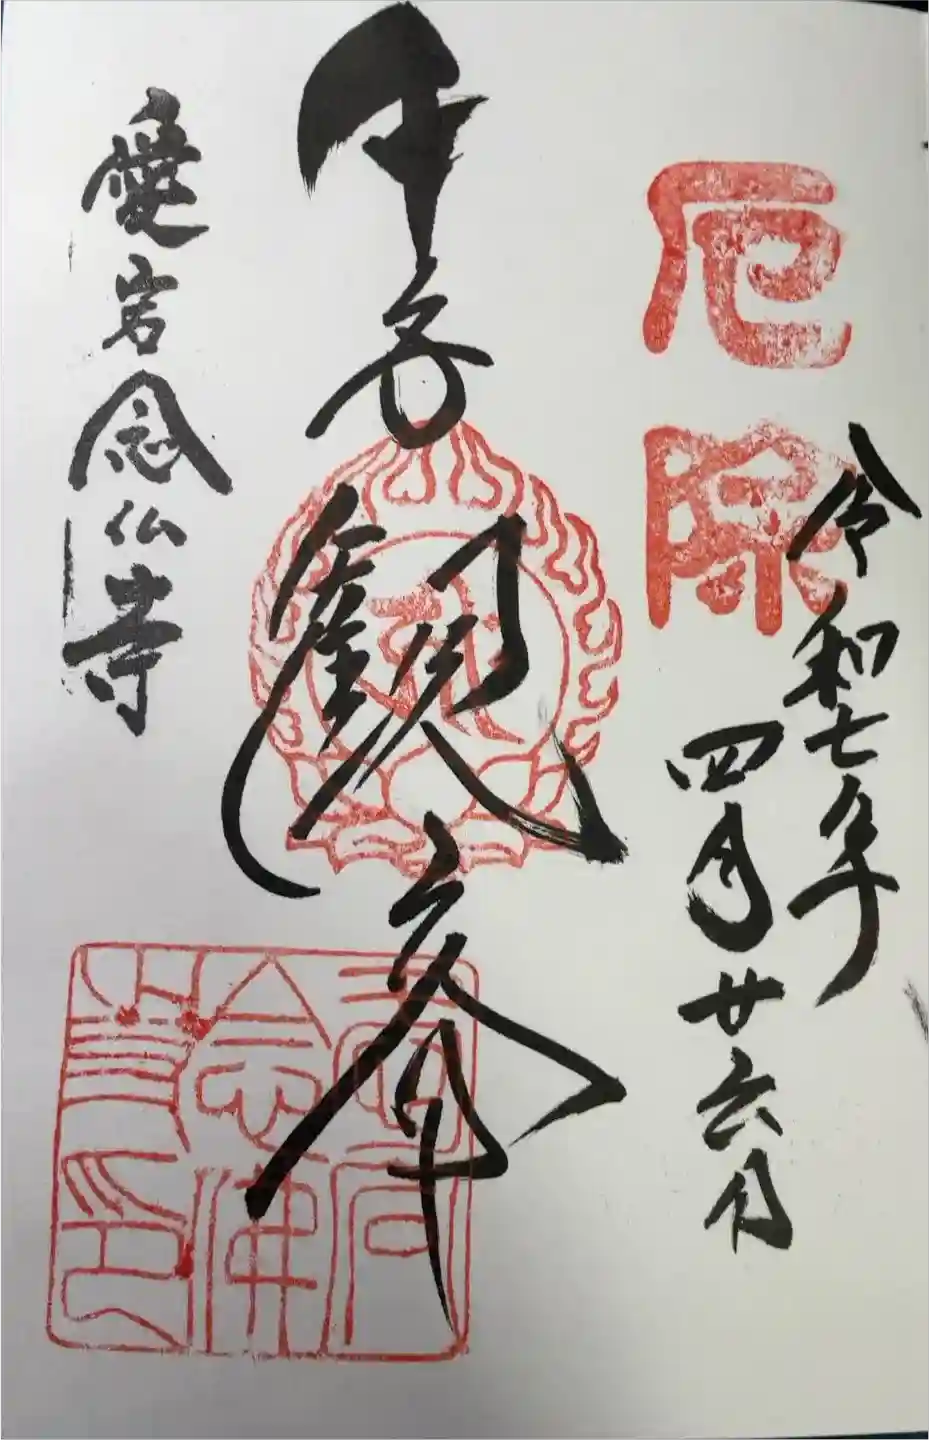 厄除
令和七年
四月廿六日
千手観
愛宕念仏寺
念佛
寺印